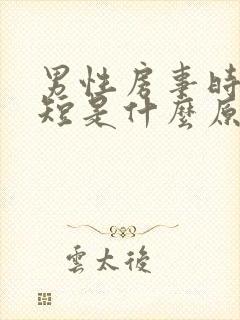 男性房事時
短是什麼原
雲太後